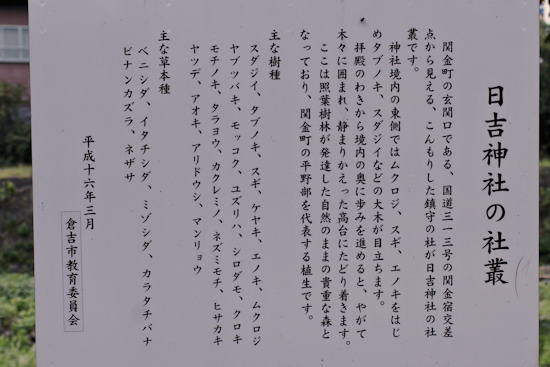 日吉神社の社叢
関金町の玄関口である、国道三一三号の関金宿交差
点から見える、こんもりした鎮守の社が日吉神社の社
叢です。
神社境内の東側ではムクロジ、スギ、エノキをはじ
めタブノキ、スダジイなどの大木が目立ちます。
拝殿のわきから境内の奥に歩みを進めると、やがて
木々に囲まれ、静まりかえった高台にたどり着きます。
ここは照葉樹林が発達した自然のままの貴重な森と
なっており、関金町の平野部を代表する植生です。
主な樹種
スダジイ、タブノキ、スギ、ケヤキ、エノキ、ムクロジ
ヤブツバキ、モッコク、ユズリハ、シロダモ、クロキ
モチノキ、タラヨウ、カクレミノ、ネズミモチ、ヒサカキ
ヤツデ、アオキ、アリドウシ、マンリョウ
主な草本種
ベニシダ、イタチシダ、ミゾシダ、カラタチバナ
ビナンカズラ、ネザサ
平成十六年三月
倉吉市教育委員会